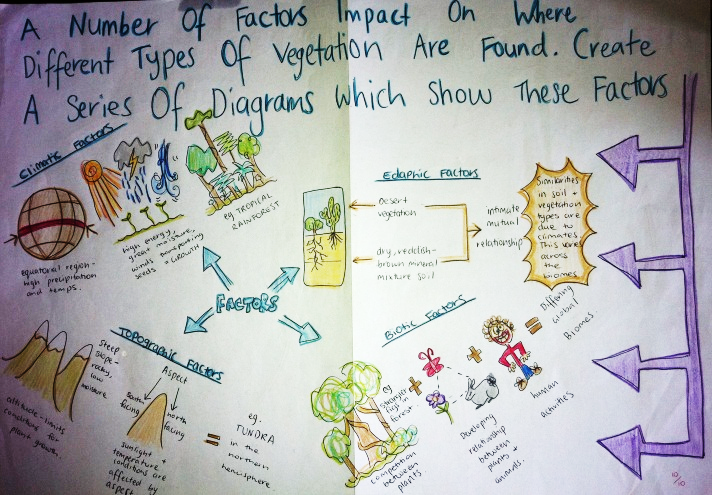 A Number Of Factors Impact On Where
Different Types Of Vegetation Are Found. Create
A Series Of Diagrams Which Show These Factors
Climatic Factors
equatorial region-
high precipitation
and temps.
high energy,
great moisture,
winds transporting
seeds = GROWTH
eg TROPICAL
RAINFOREST
Edaphic Factors
desert
vegetation
dry, reddish-
brown mineral
mixture soil
intimate
mutual
relationship
Similarities
in soil +
vegetation
types are
due to
climates.
This varies
across
the
biomes
FACTORS
Topographic Factors
steep
slope-
rocky,
low
moisture
altitude-limits
conditions for
plant growth.
Aspect
south
facing
north
facing
sunlight +
temperature
conditions are
affected by
aspect
=
eg.
TUNDRA
in the
northern
hemisphere
Biotic Factors
eg
strangler
figs in
forest
competition
between
plants
+
Developing
relationship
between
plants +
animals.
+
human
activities
=
Differing
Global
Biomes
10/10